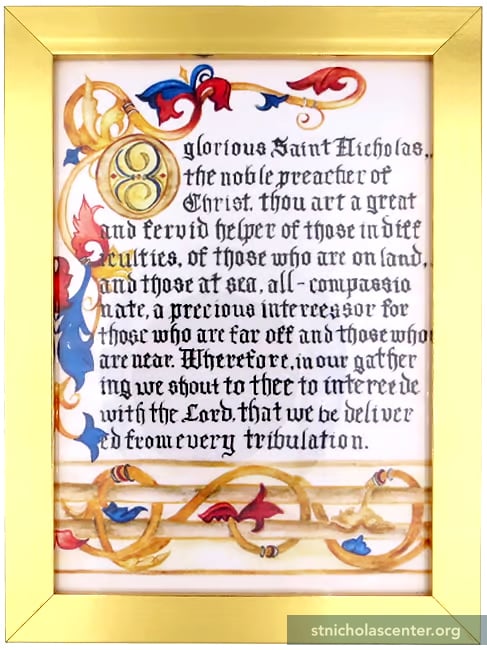 O glorious Saint Nicholas,
the noble preacher of
Christ, thou art a great
and fervid helper of those in diff
iculties, of those who are on land,
and those at sea, all-compassio
nate, a precious intercessor for
those who are far off and those who
are near. Wherefore, in our gather
ing we shout to thee to intercede
with the Lord, that we be deliver
ed from every tribulation.
stnicholascenter.org